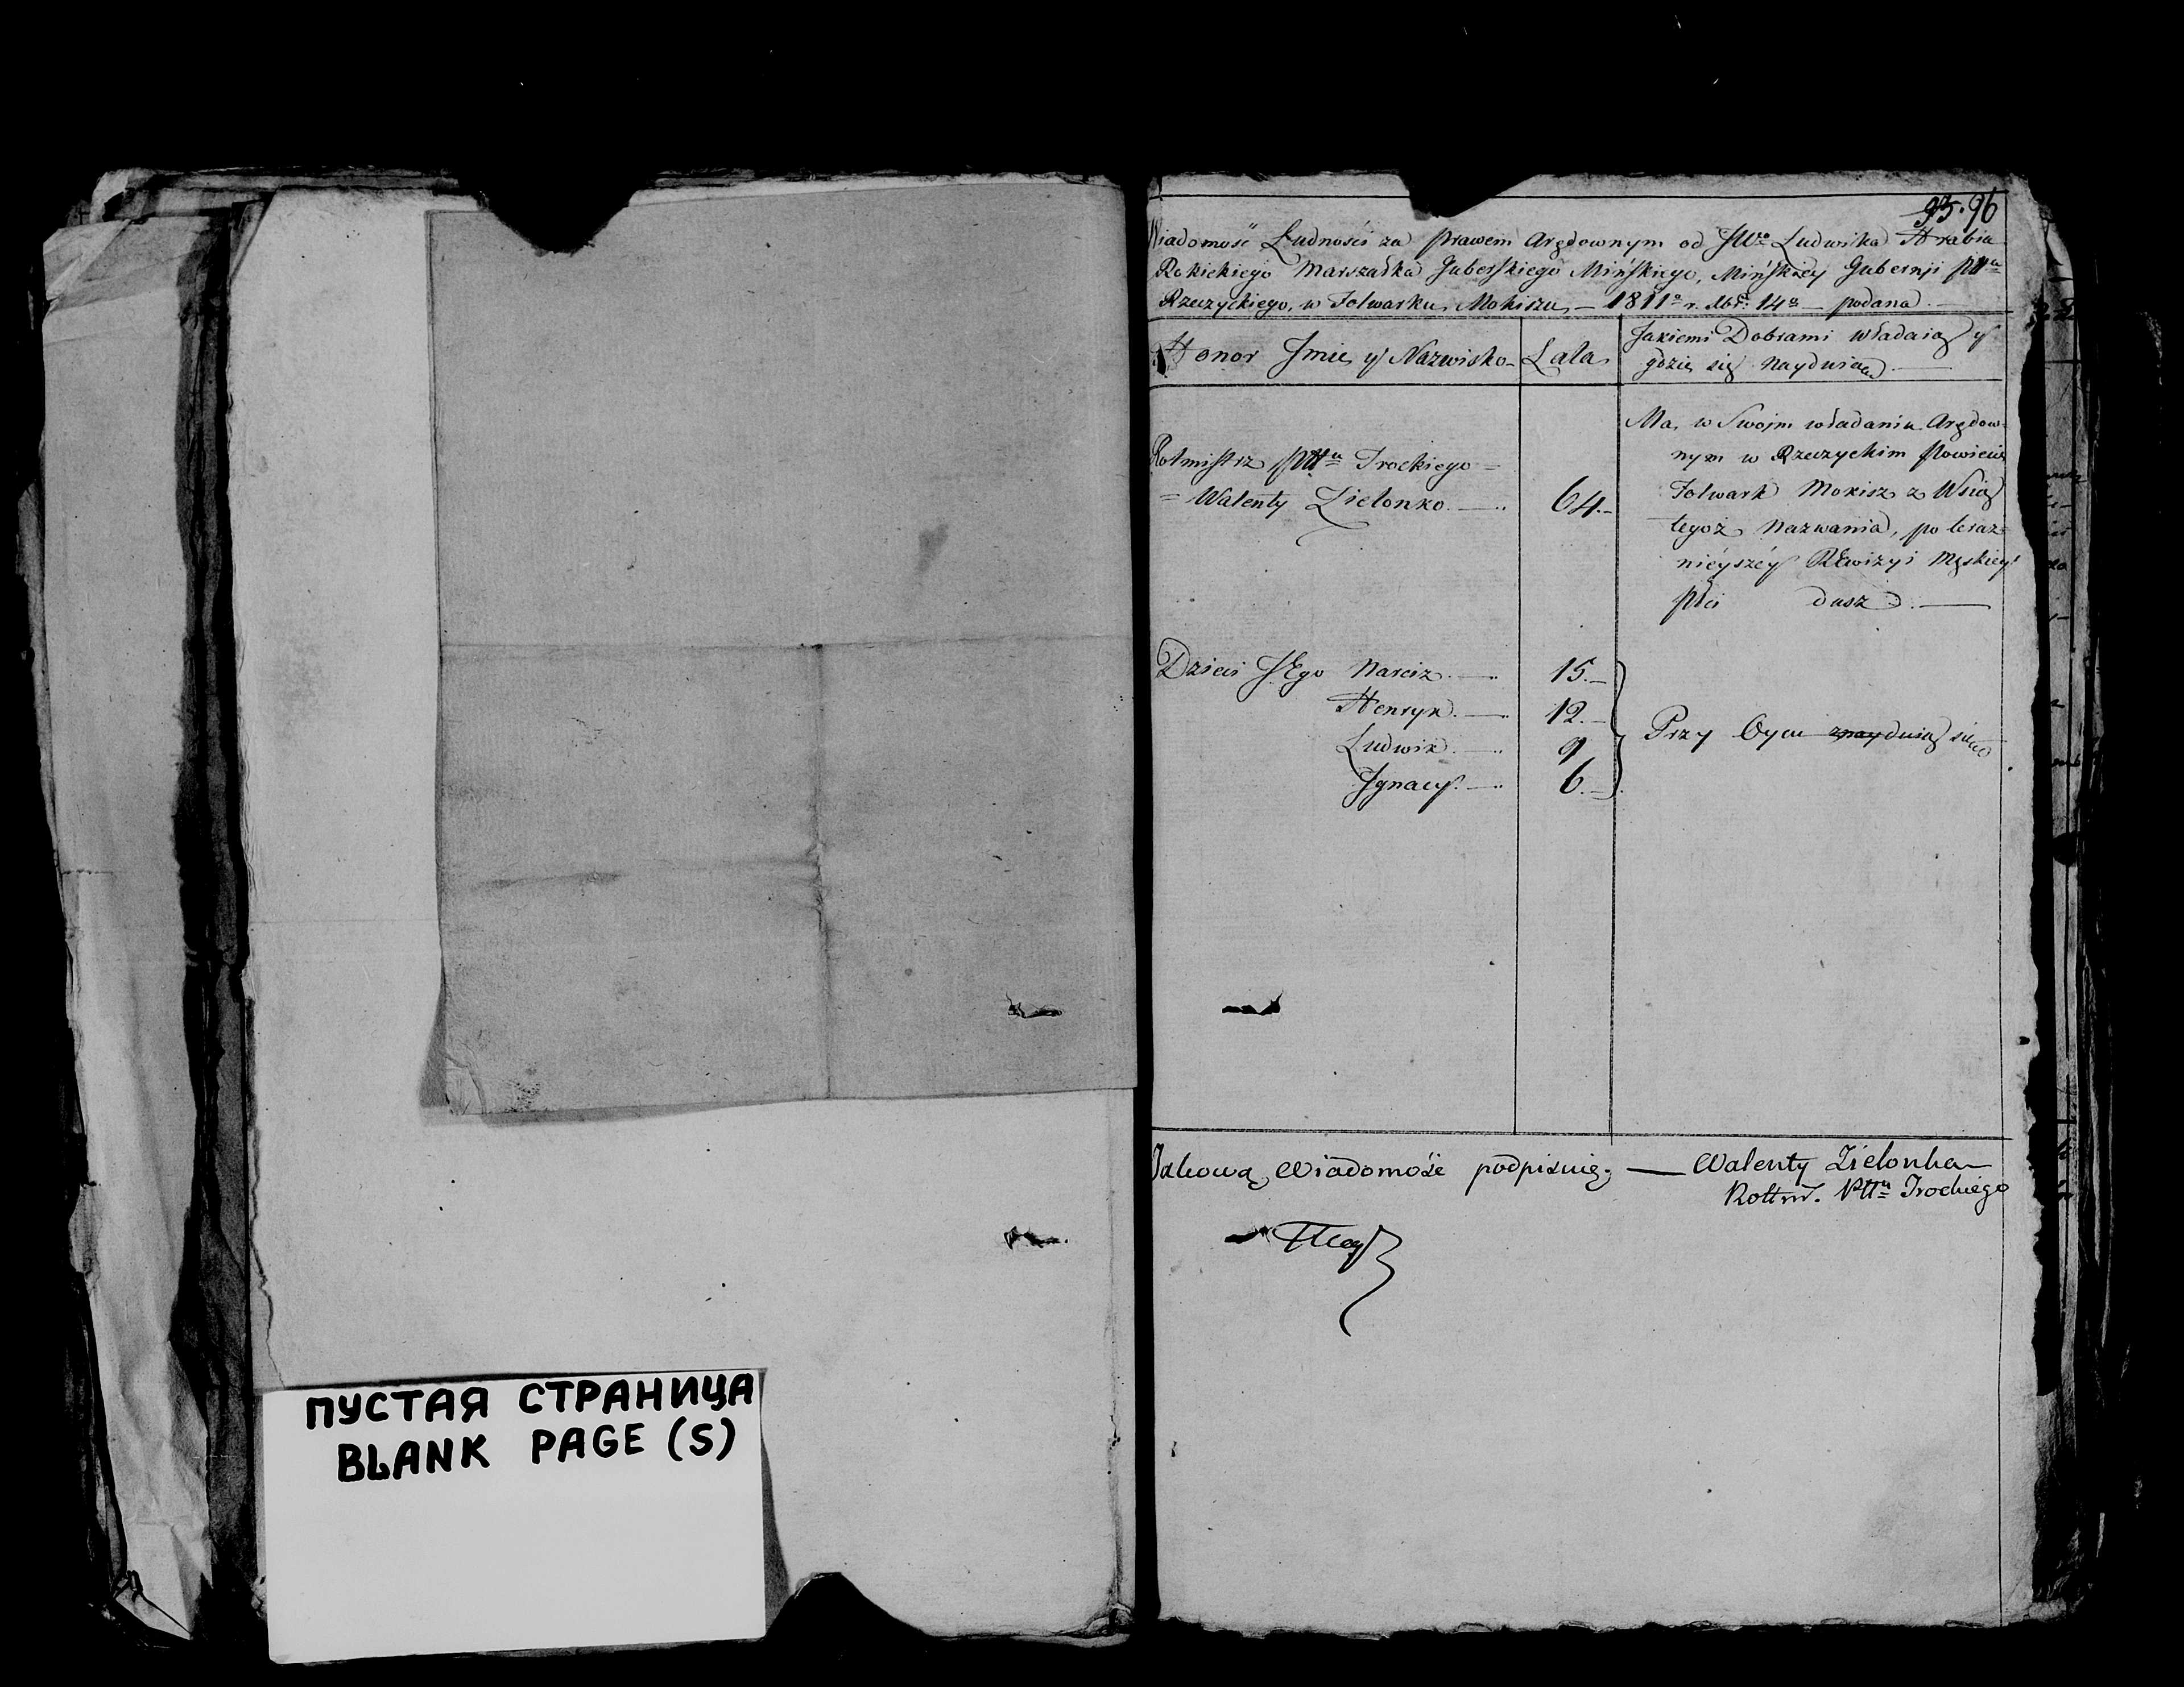 ПУСТАЯ СТРАНИЦА
BLANK PAGE (S)
93. 96
Wiadomość Ludności za prawem Arędownym od JWo Ludwika Hrabia
Rokickiego Marszałka Guberskiego Mińskiego, Mińskiey Gubernji Pttu
Rzeczyckiego, w Folwarku Mokiszu – 1811o r. 14o podana
Honor Jmie y Nazwisko Lata Jakiemi Dobrami władaią y
gdzie się nayduią
Ma, w Swojm władaniu Arędow-
nym w Rzeczyckim Powiecie
Rotmistrz Pttu Trockiego =
= Walenty Zielonko 64.-
Folwark Mokisz z Wsią
tegoż Nazwania, po teraz=
nieyszéy Rewizyi Męskiey
Płci dusz
Dzieci JEgo Narciz 15.
Henryk 12.
Ludwik 9
Jgnacy 6.
Przy Oycu znayduią się
Takową Wiadomość podpisuię; — Walenty Zielonka
Rottm. Pttu Trockiego